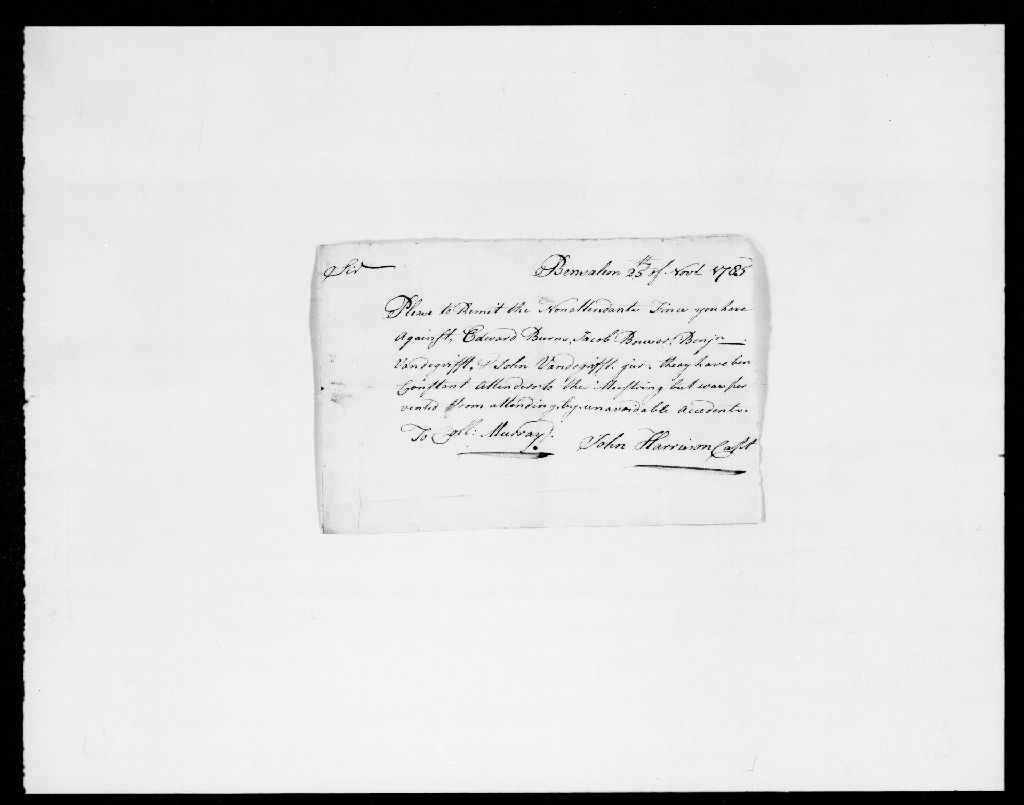 Sir Bensalem 25th of Novr 1785
Please to Remit the Nonattendants Fines you have
Against, Edward Burns, Jacob Brewer, Benjn
Vandegrifft, & John Vandegrifft. jur. theay have ben
Constant Attenders to the Musttring but was per
vented from attending, by unavoidable Accedents.
To Coll: Murray. John Harrison Capt